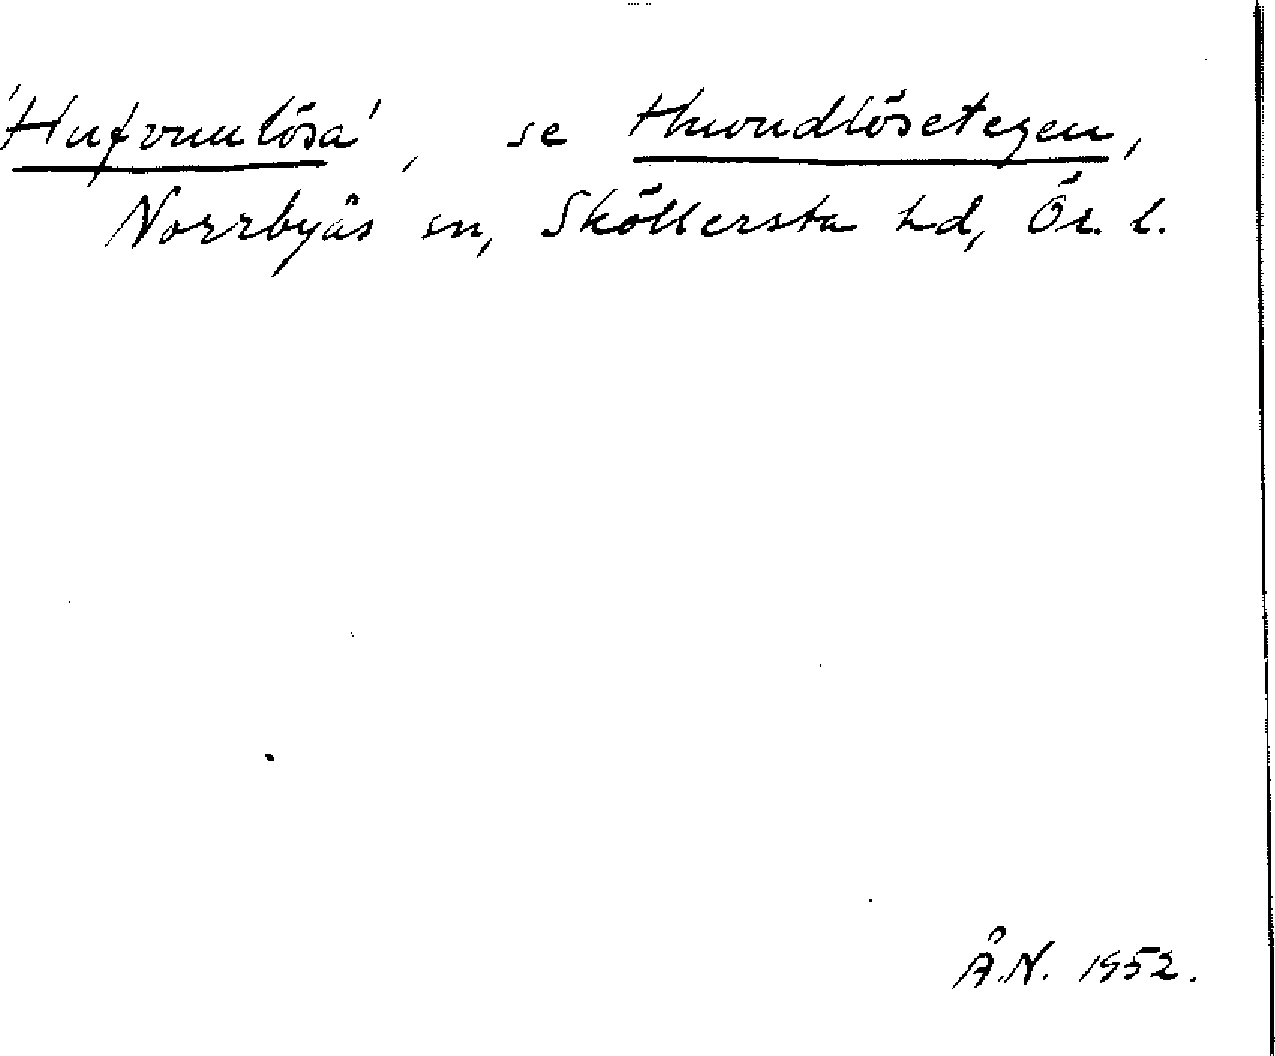 'Hufvunlösa', se Huvudlösetegen,
Norrbyås sn, Sköllersta hd, Ör. l.
Å.N. 1952.